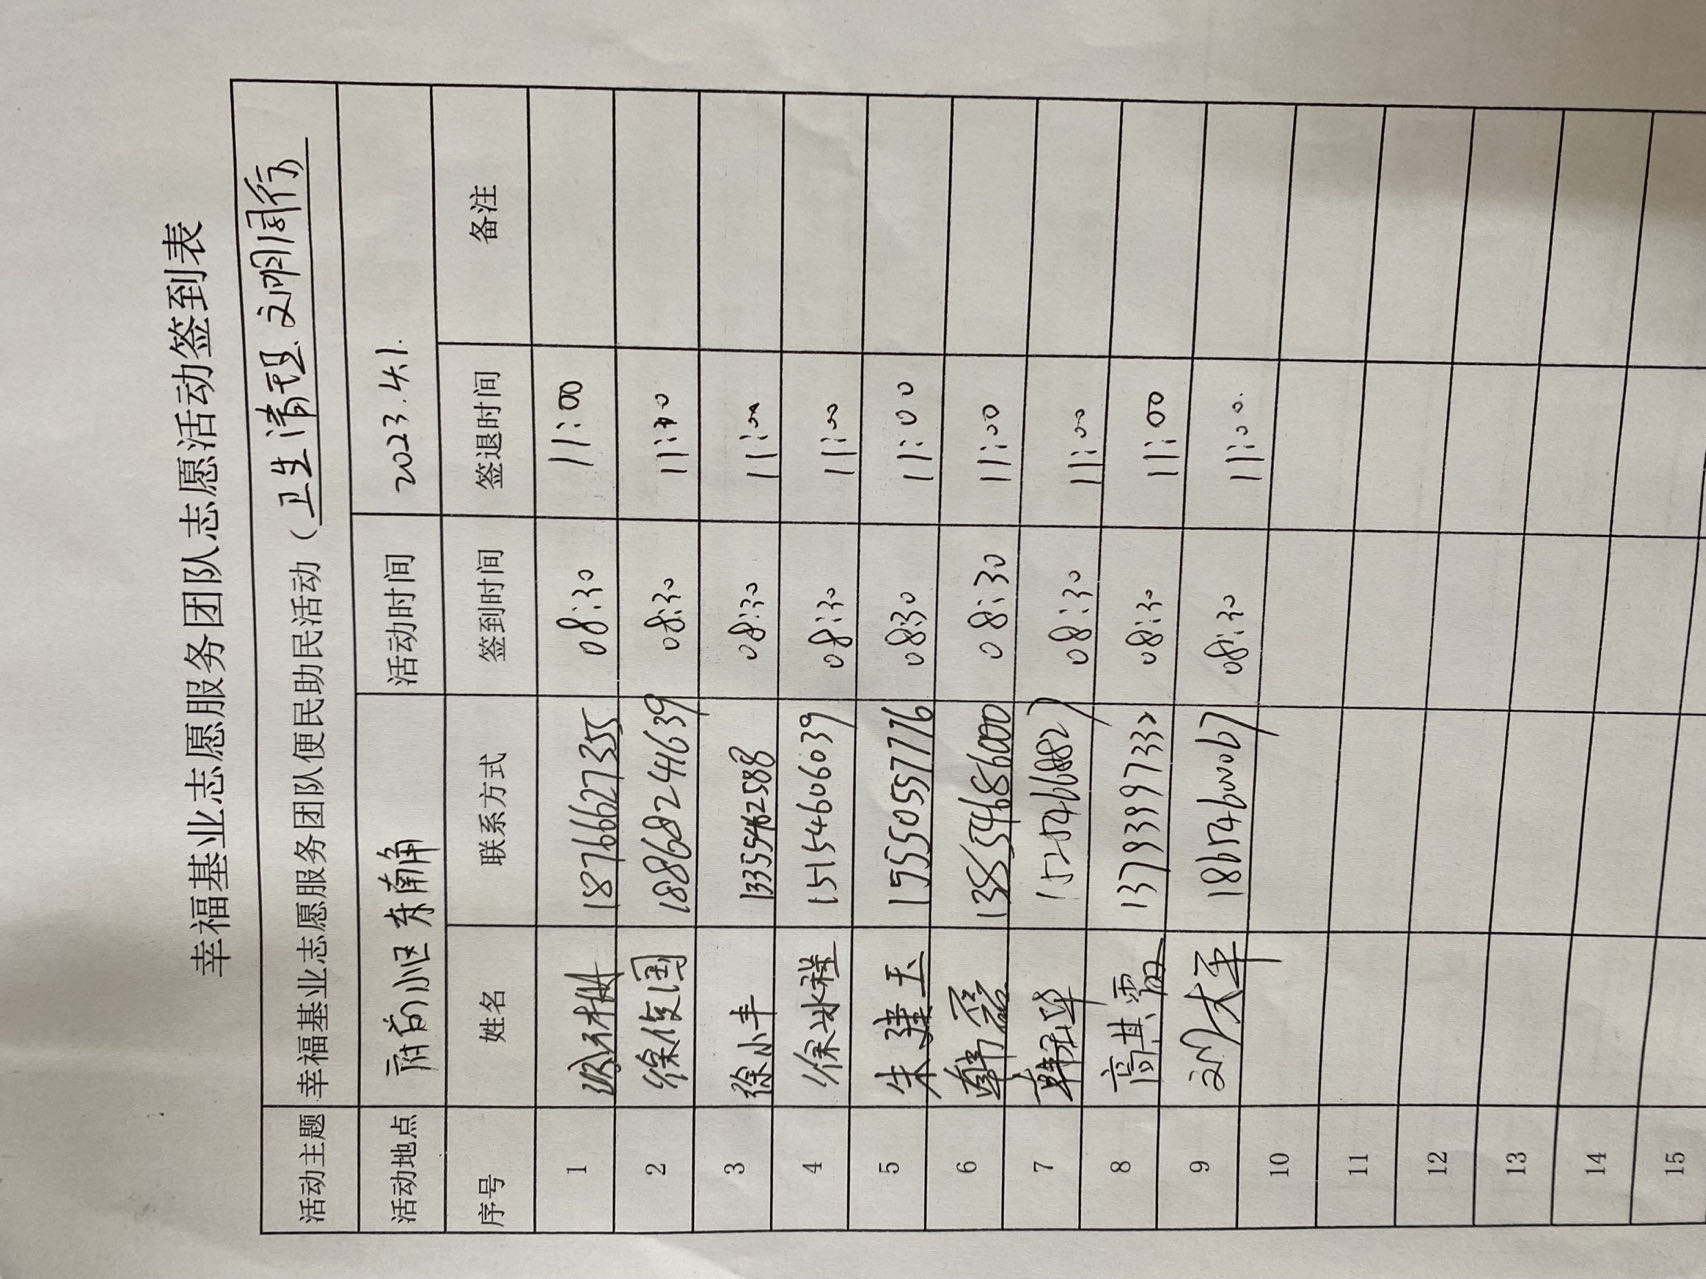 幸福基业志愿服务团队志愿活动签到表
活动主题 幸福基业志愿服务团队便民助民活动（卫生清理 文明同行
活动地点 府前小区东南角 活动时间 2023.4.1.
序号 姓名 联系方式 签到时间 签退时间 备注
1 18766627355 08:30 11:00
2 徐俊国 18868241639 08:30 11:30
3 徐小丰 13355462588 08:30 11:00
4 徐冰程 15154606039 08:30 11:00
5 朱建玉 15550557776 08:30 11:00
6 韩磊 13854686000 08:30 11:00
7 韩云华 15254668827 08:30 11:00
8 高其雷 08:30 11:00
9 刘大平 08:30 11:00.
10
11
12
13
14
15